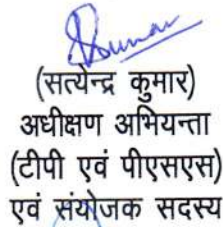 (सत्येन्द्र कुमार)
अधीक्षण अभियन्ता
(टीपी एवं पीएसएस)
एवं संयोजक सदस्य